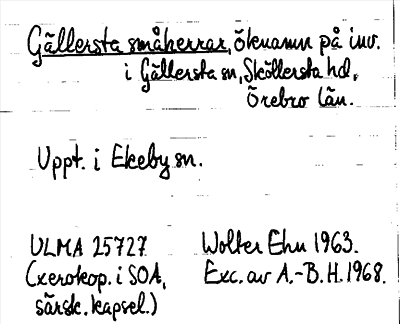 Gällersta småherrar, öknamn på inv.
i Gällersta sn, Sköllersta hd,
Örebro län.
Uppt. i Ekeby sn.
ULMA 25727 Wolter Ehn 1963.
(xerokop. i SOA, Exc. av A.-B. H. 1968.
särsk. kapsel.)